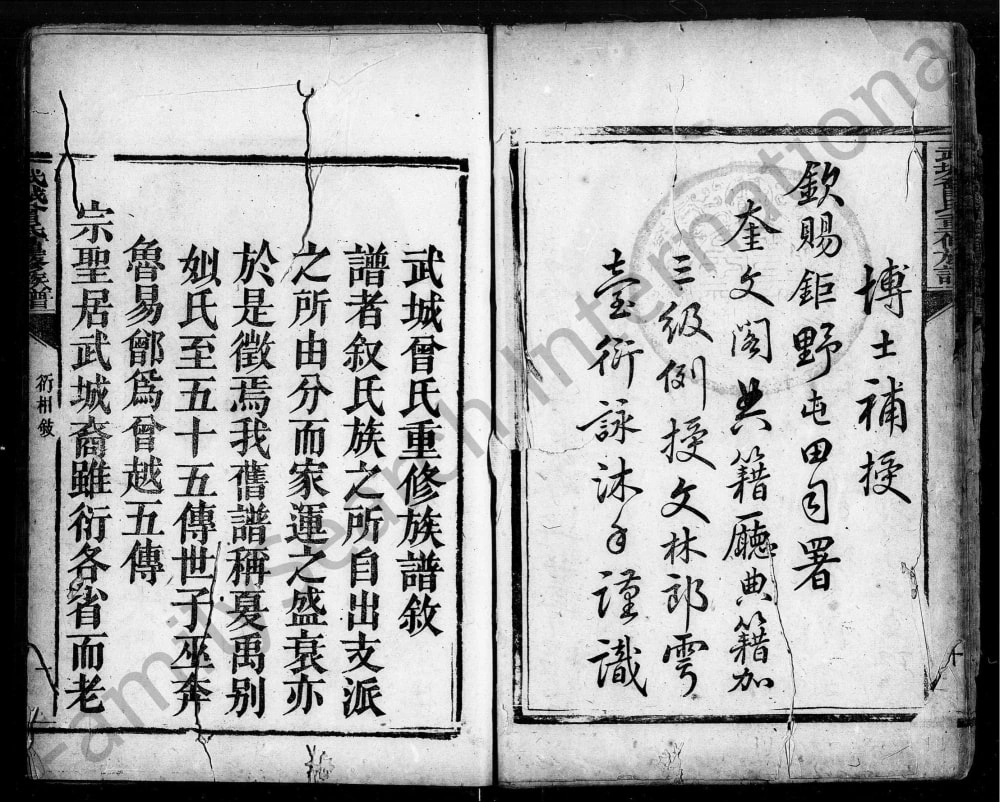 博士補授
欽賜鉅野屯田司署
奎文閣典籍廳典籍加
三級例授文林郎雲
臺衍詠沐手謹識
十
武城曾氏重修族譜
武城曾氏重修族譜敘
譜者叙氏族之所自出支派
之所由分而家運之盛衰亦
於是徵焉我舊譜稱夏禹別
姒氏至五十五傳世子巫奔
魯易鄫爲曾越五傳
宗聖居武城裔雖衍各省而老
武城曾氏重修族譜
衍相敘
一
FamilySearch International